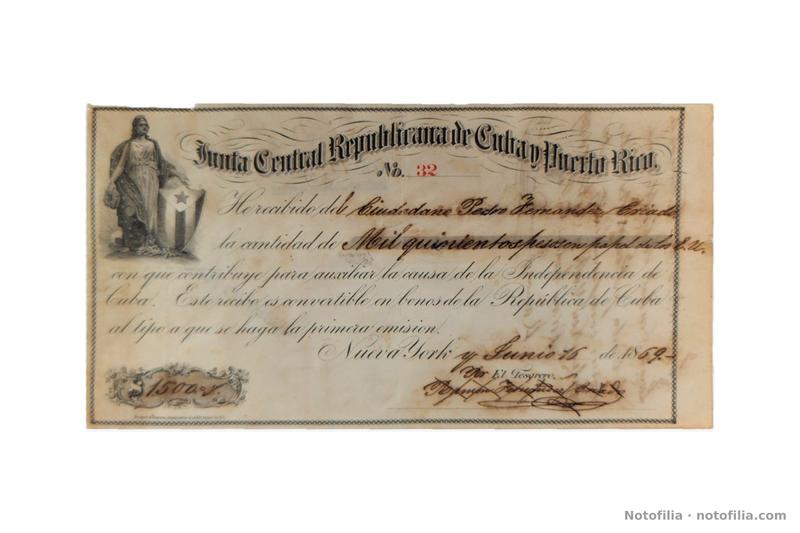 Junta Central Republicana de Cuba y Puerto Rico.
No. 32
He recibido del Ciudadano Pedro Fernandez Criado
la cantidad de Mil quinientos pesos en papel de los E.U.
con que contribuye para auxiliar la causa de la Independencia de
Cuba. Este recibo es convertible en bonos de la República de Cuba
al tipo a que se haga la primera emision.
Nueva York y Junio 16 de 1869.
Por El Tesorero,
Fernandez Criado
$ 1500
Notofilia · notofilia.com